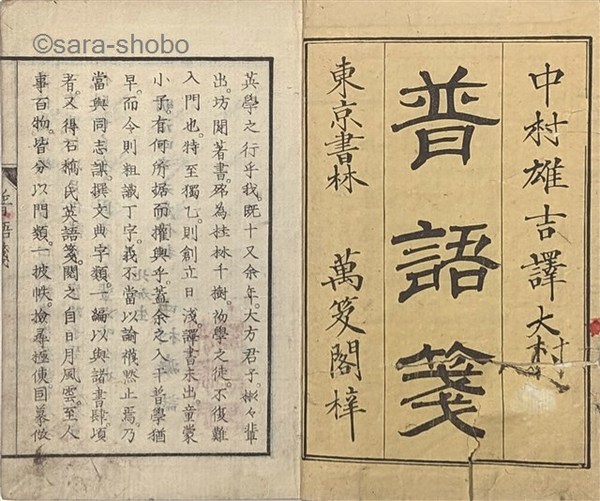 ©sara-shobo
中村雄吉譯
普語箋
東京書林 萬笈閣梓
英學之行乎我。既十又余年。大方君子。彬々輩
出。坊間著書。殆為桂林千樹。初學之徒。不復難
入門也。特至獨乙。則創立日淺。譯書未出。童蒙
小子。有何所据而權輿乎。蓋余之入于普學猶
早。而今則粗識丁字。義不當以諭黙止焉。乃
嘗與同志謀撰文典字類一編以與諸書肆頃
者。又得石橋氏英語箋。閱之自日月風雲。至人
事百物。皆分以門類。一披帙。撿尋極便。因摹倣
普語箋